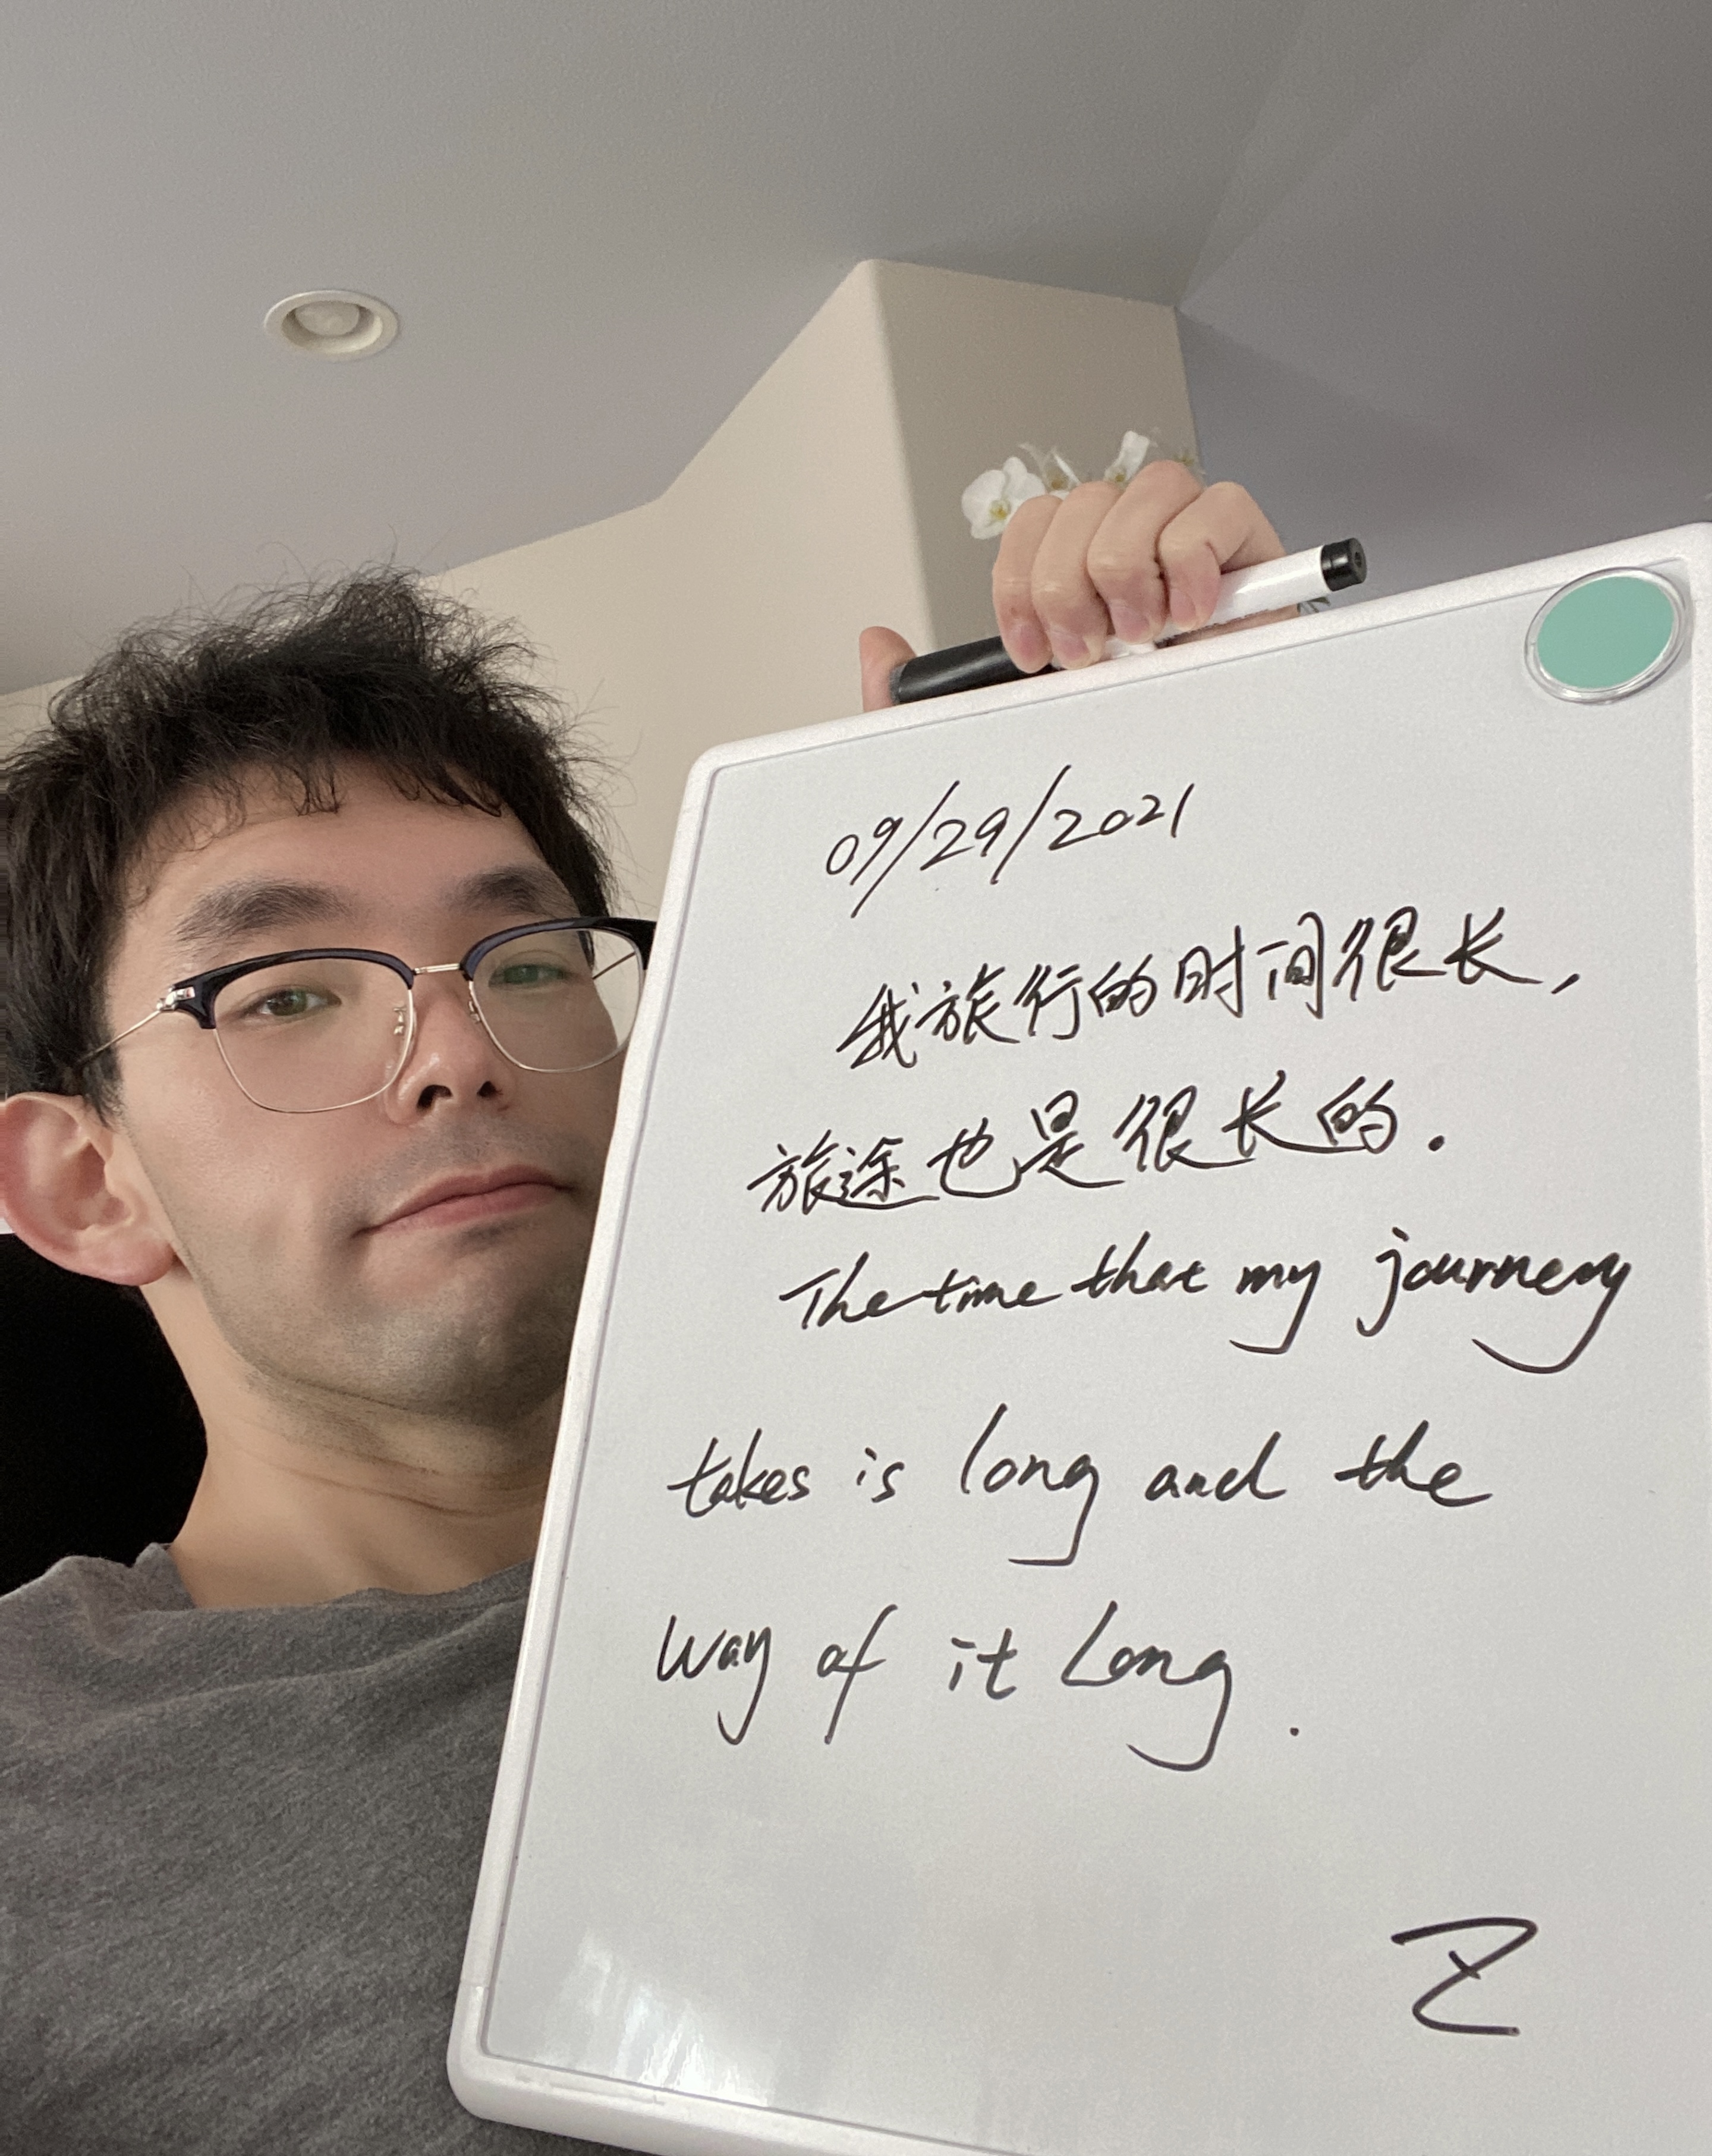 09/29/2021
我旅行的时间很长,
旅途也是很长的.
The time that my journey
takes is long and the
way of it Long.
Z